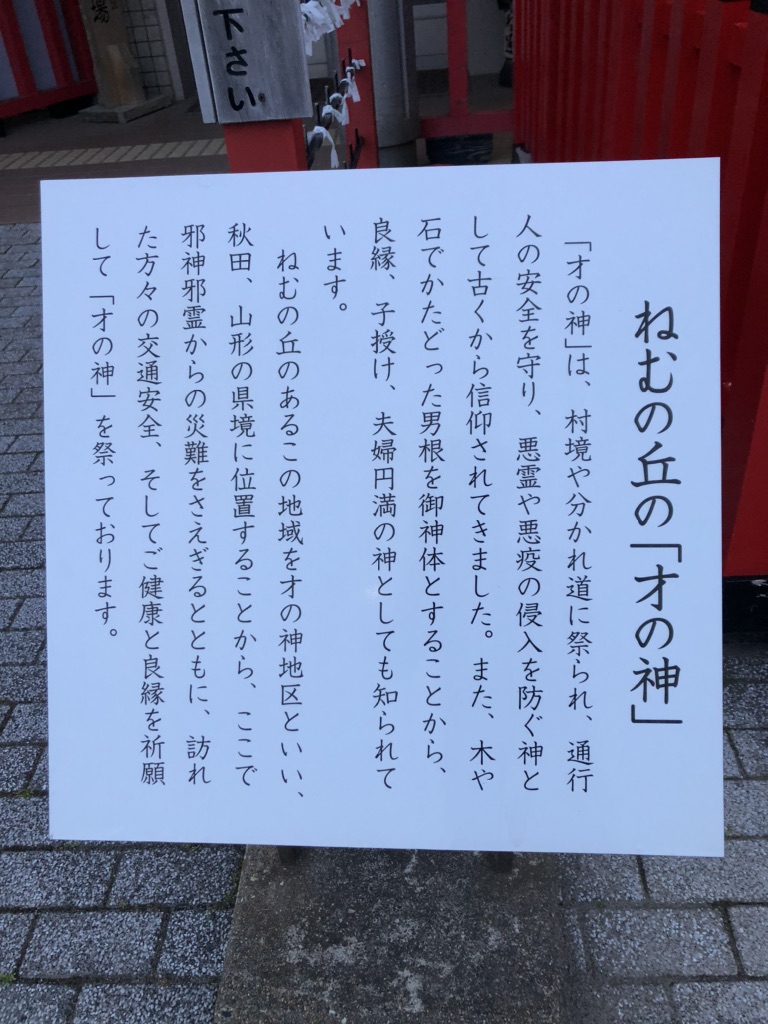 ねむの丘の「才の神」
「才の神」は、村境や分かれ道に祭られ、通行
人の安全を守り、悪霊や悪疫の侵入を防ぐ神と
して古くから信仰されてきました。また、木や
石でかたどった男根を御神体とすることから、
良縁、子授け、夫婦円満の神としても知られて
います。
ねむの丘のあるこの地域を才の神地区といい、
秋田、山形の県境に位置することから、ここで
邪神邪霊からの災難をさえぎるとともに、訪れ
た方々の交通安全、そしてご健康と良縁を祈願
して「才の神」を祭っております。
下さい
場